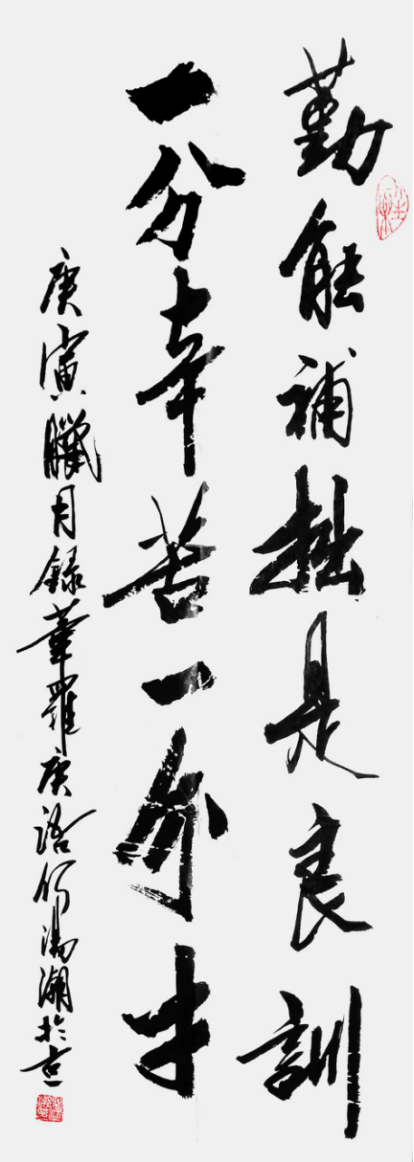 勤能補拙是良訓
一分辛苦一分才
庚寅臘月錄華羅庚語於京